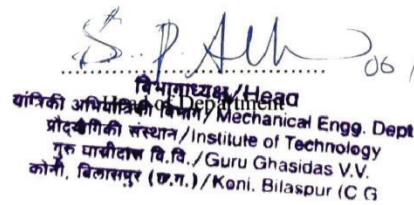 06/
विभागाध्यक्ष/Head
Head of Department
यांत्रिकी अभियांत्रिकी विभाग/Mechanical Engg. Dept
प्रौद्योगिकी संस्थान/Institute of Technology
गुरु घासीदास वि.वि./Guru Ghasidas V.V.
कोनी, बिलासपुर (छ.ग.)/Koni, Bilaspur (C G